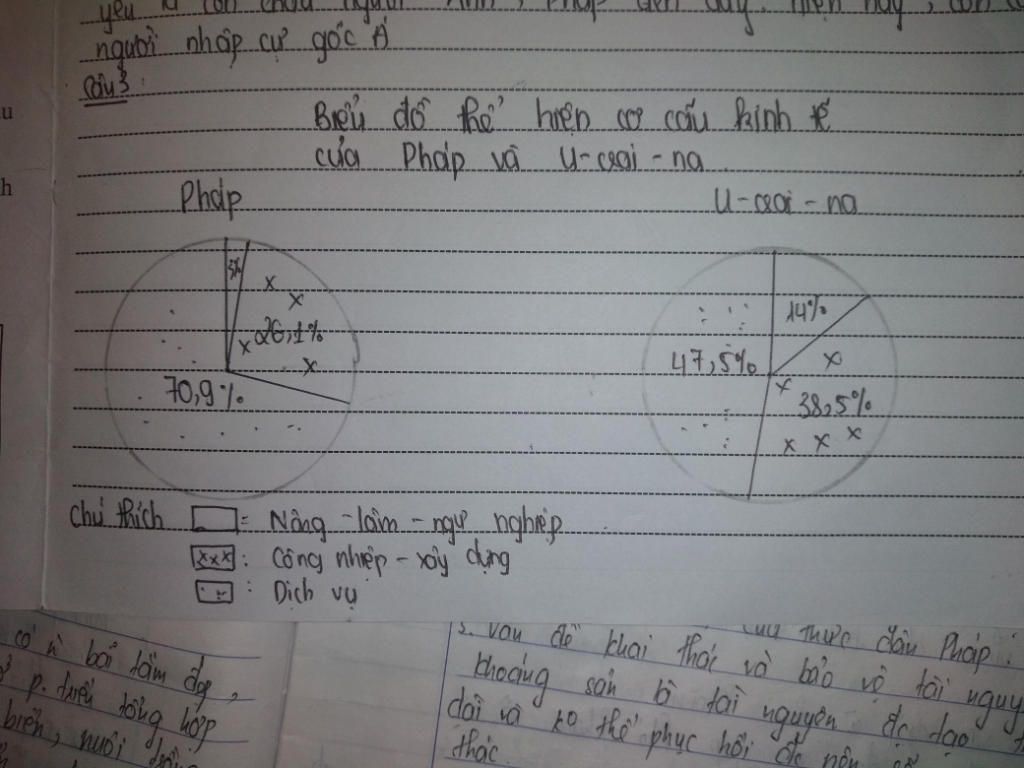 người nhập cư gốc Á
Câu 3:
Biểu đồ thể hiện cơ cấu kinh tế
của Pháp và U-crai-na
Pháp
U-crai-na
3%
26,1%
70,9%
14%
47,5%
38,5%
Chú thích = Nông-lâm-ngư nghiệp
xxx : Công nhiệp-xây dựng
: Dịch vụ
có bãi tắm đẹp,
p.triển tổng hợp
biển, nuôi
u
h
3. Vấn đề khai thác và bảo vệ tài nguy
khoáng sản là tài nguyên đc tạo
dài và ko thể phục hồi đc nên
thác
thực dân Pháp: